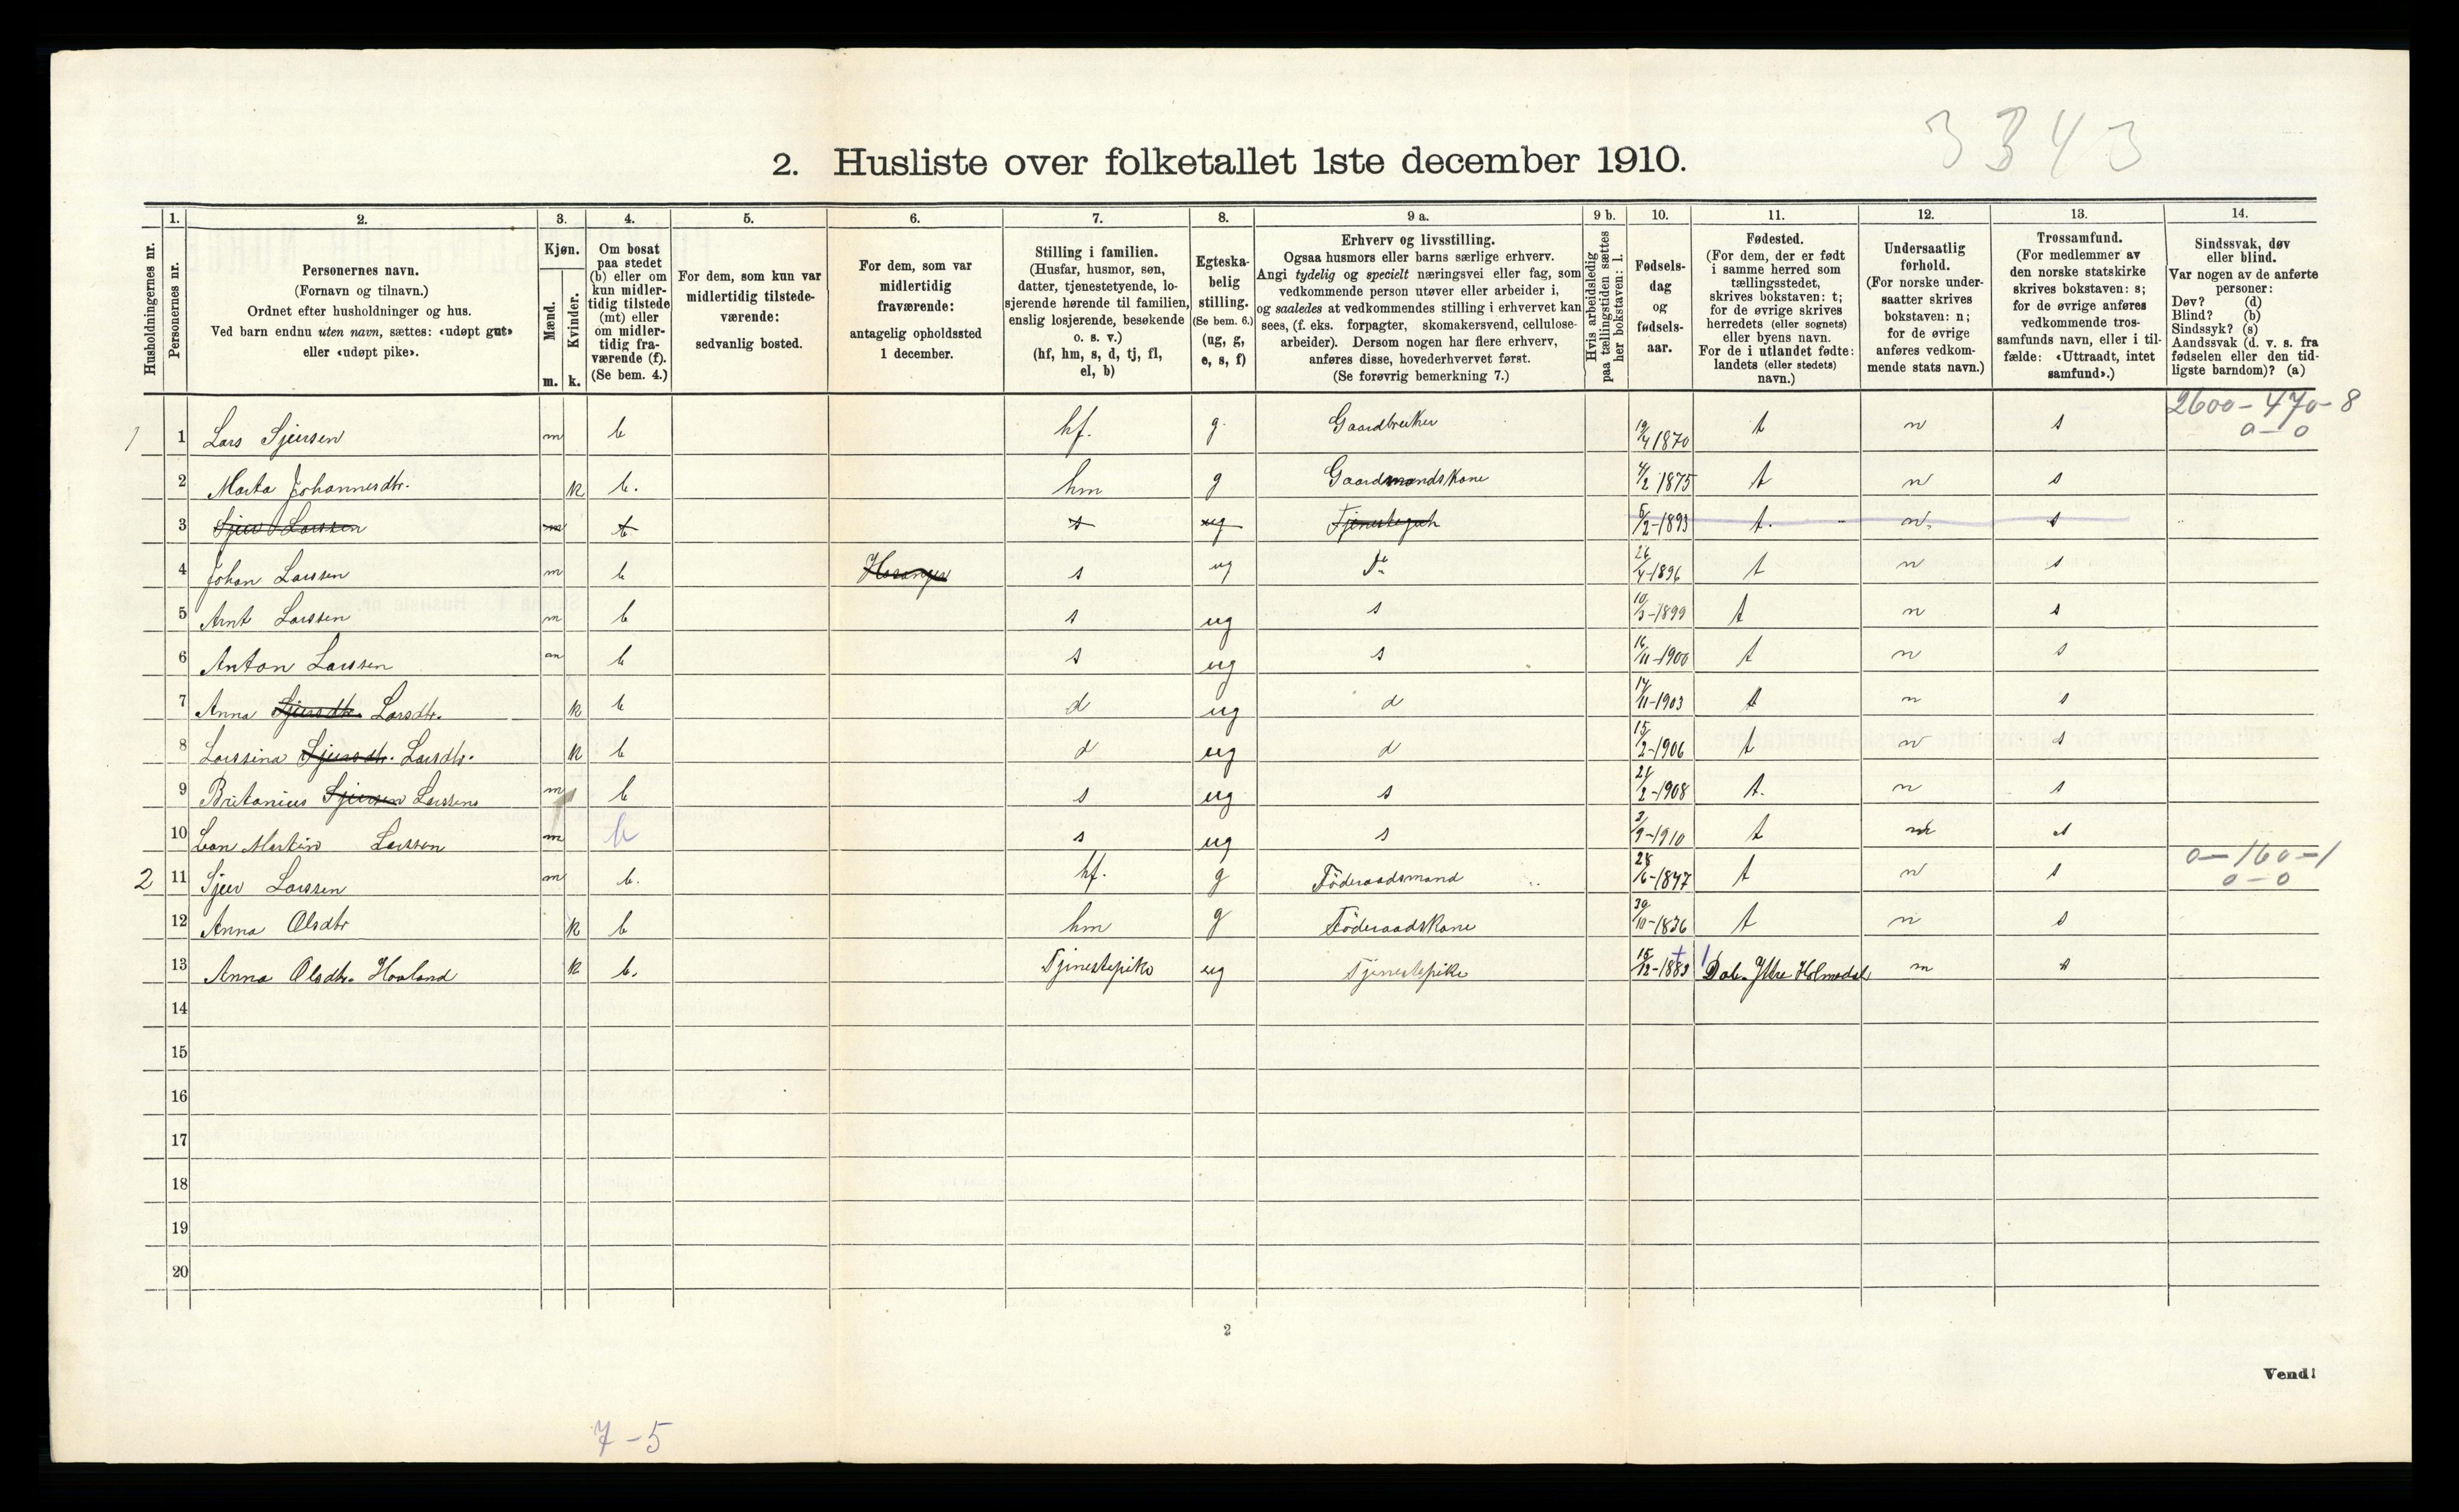 3343
2. Husliste over folketallet 1ste december 1910.
Husholdningernes nr.
1. Personernes nr.
2. Personernes navn. (Fornavn og tilnavn.) Ordnet efter husholdninger og hus. Ved barn endnu uten navn, sættes: «udøpt gut» eller «udøpt pike».
3. Kjøn. Mænd. m. Kvinder. k.
4. Om bosat paa stedet (b) eller om kun midler-tidig tilstede (mt) eller om midler-tidig fra-værende (f). (Se bem. 4.)
5. For dem, som kun var midlertidig tilstede-værende: sedvanlig bosted.
6. For dem, som var midlertidig fraværende: antagelig opholdssted 1 december.
7. Stilling i familien. (Husfar, husmor, søn, datter, tjenestetyende, lo-sjerende hørende til familien, enslig losjerende, besøkende o. s. v.) (hf, hm, s, d, tj, fl, el, b)
8. Egteska-belig stilling. (Se bem. 6.) (ug, g, e, s, f)
9 a. Erhverv og livsstilling. Ogsaa husmors eller barns særlige erhverv. Angi tydelig og specielt næringsvei eller fag, som vedkommende person utøver eller arbeider i, og saaledes at vedkommendes stilling i erhvervet kan sees, (f. eks. forpagter, skomakersvend, cellulose-arbeider). Dersom nogen har flere erhverv, anføres disse, hovederhvervet først. (Se forøvrig bemerkning 7.)
9 b. Hvis arbeidsledig paa tællingstiden sættes her bokstaven: l.
10. Fødsels-dag og fødsels-aar.
11. Fødested. (For dem, der er født i samme herred som tællingsstedet, skrives bokstaven: t; for de øvrige skrives herredets (eller sognets) eller byens navn. For de i utlandet fødte: landets (eller stedets) navn.)
12. Undersaatlig forhold. (For norske under-saatter skrives bokstaven: n; for de øvrige anføres vedkom-mende stats navn.)
13. Trossamfund. (For medlemmer av den norske statskirke skrives bokstaven: s; for de øvrige anføres vedkommende tros-samfunds navn, eller i til-fælde: «Uttraadt, intet samfund».)
14. Sindssvak, døv eller blind. Var nogen av de anførte personer: Døv? (d) Blind? (b) Sindssyk? (s) Aandssvak (d. v. s. fra fødselen eller den tid-ligste barndom)? (a)
1 1 Lars Sjursen m b hf. g. Gaardbruker 19/4 1870 t n s 2600-470-8 0-0
2 Marta Johannesdtr. k b. hm g Gaardmandskone 4/2 1875 t n s
3 Sjur Larssen m t s ug Tjenestegut 6/2-1893 t. n. s
4 Johan Larssen m b s ug Do 26/4-1896 t n s
5 Arnt Larssen m b s ug s 10/3-1899 t n s
6 Anton Larssen m b s ug s 16/11-1900 t n s
7 Anna Sjursdtr. Larsdtr. k b d ug d 14/11-1903 t n s
8 Larssina Sjursdtr. Larsdtr. k b d ug d 15/2-1906 t n s
9 Britanius Sjursen Larssen m b s ug s 21/2-1908 t. n s
10 Martin Larssen m b s ug s 3/9-1910 t n s
2 11 Sjur Larssen m b. hf. g Föderaadsmand 28/6-1847 t n s 0-160-1 0-0
12 Anna Olsdtr k b hm g FöderaadsKone 30/10-1836 t n s
13 Anna Olsdtr. Hovland k b. Tjenestepike ug Tjenestepike 15/12-1883 Dale Ytre Holmedal n s
14
15
16
17
18
19
20
2
Vend!
7-5